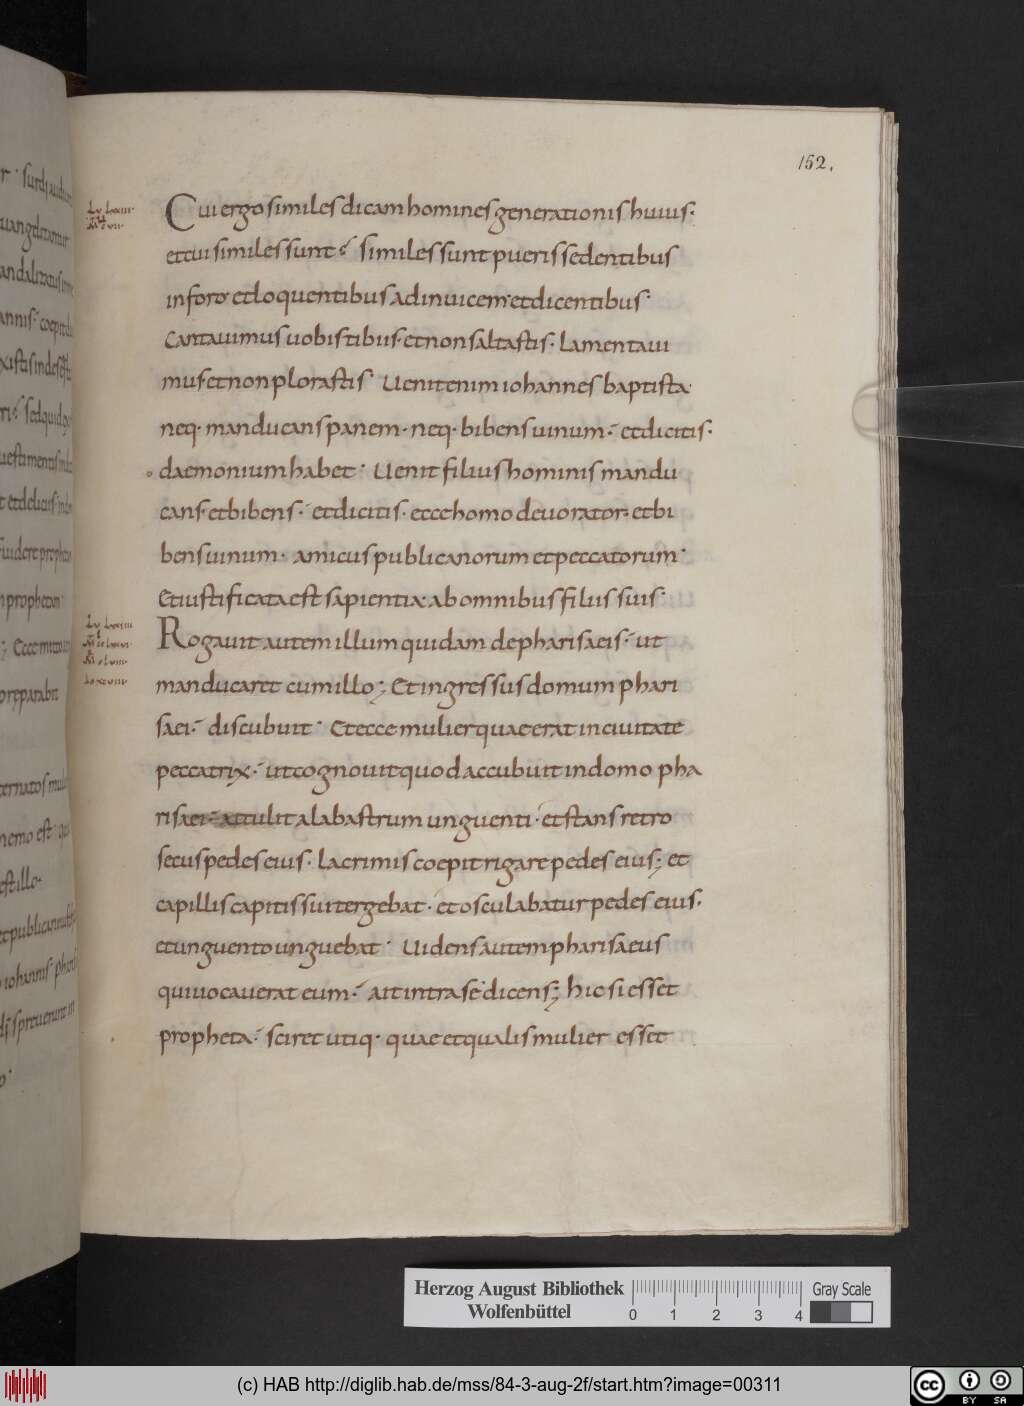 152.
Cui ergo similes dicam homines generationis huius·
et cui similes sunt? Similes sunt pueris sedentibus
in foro· et loquentibus ad inuicem et dicentibus·
Cantauimus uobis tibiis· et non saltastis· Lamentaui
mus et non plorastis· Uenit enim iohannes baptista·
neq· manducans panem· neq· bibens uinum· et dicitis·
daemonium habet· Uenit filius hominis mandu
cans· et bibens· et dicitis· ecce homo deuorator· et bi
bens uinum· amicus publicanorum et peccatorum·
Et iustificata est sapientia· ab omnibus filiis suis·
Rogauit autem illum quidam de pharisaeis· ut
manducaret cum illo; Et ingressus domum phari
saei· discubuit· Et ecce mulier quae erat in ciuitate
peccatrix· ut cognouit quod accubuit in domo pha
risaei· attulit alabastrum unguenti· et stans retro
secus pedes eius· lacrimis coepit rigare pedes eius; et
capillis capitis sui tergebat· et osculabatur pedes eius·
et unguento unguebat· Uidens autem pharisaeus
qui uocauerat eum· ait intra se dicens; hic si esset
propheta· sciret utiq· quae et qualis mulier esset
Herzog August Bibliothek
Wolfenbüttel
0 1 2 3 4
Gray Scale
(c) HAB http://diglib.hab.de/mss/84-3-aug-2f/start.htm?image=00311
cc BY SA